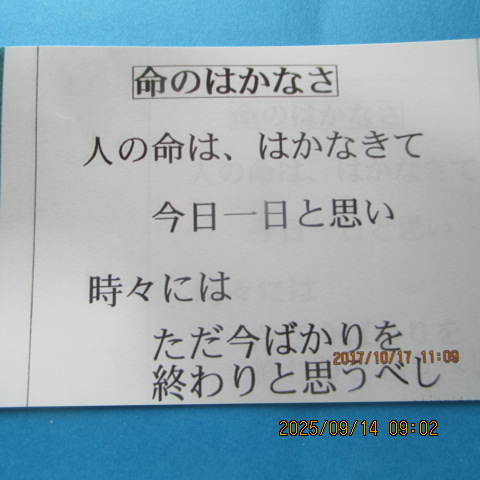 命のはかなさ
人の命は、はかなきて
今日一日と思い
時々には
ただ今ばかりを
2017/10/17 11:09
終わりと思うべし
2025/09/14 09:02